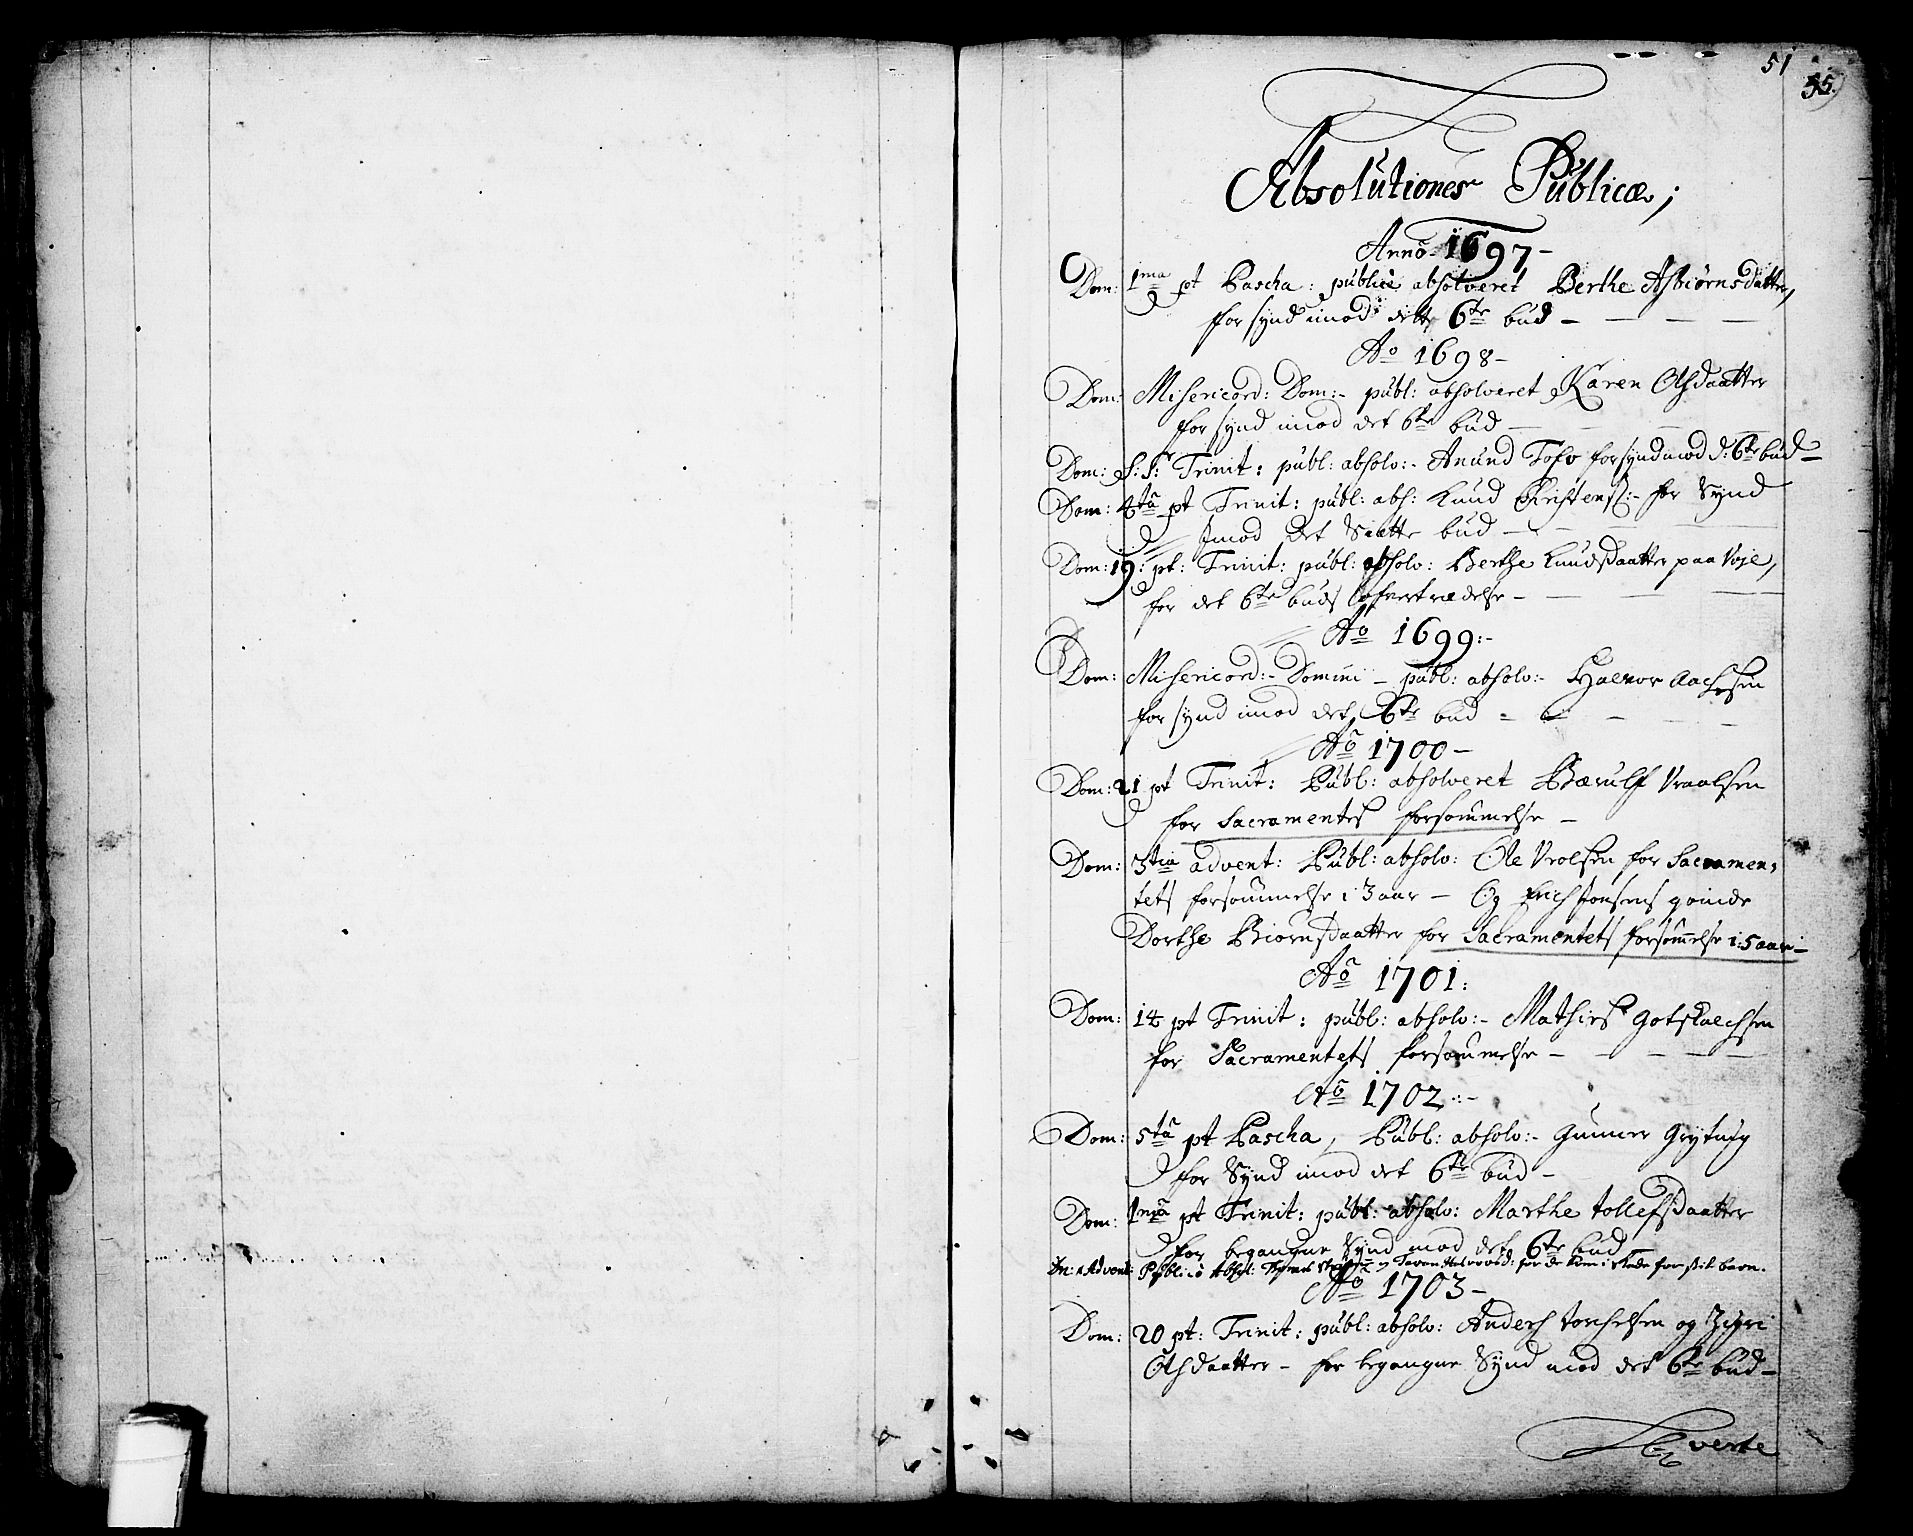 51
55.
Absolutiones Publicæ;
Anno 1697-
Dom: 1ma pt Pascha: publice absolveret Berthe Asbiørnsdatter,
for synd imod dett 6te bud -
Ao 1698-
Dom: Misericord: Dom:- publ: absolveret Karen Olsdaatter
for synd imod det 6te bud -
Dom: S: S: Trinit: publ: absolv:- Anund Tofo for synd mod d: 6te bud -
Dom: 4ta pt Trinit: publ: abs: Knud Christens:- for Synd
Imod Det Siætte bud -
Dom: 19: pt: Trinit: publ: absolv: Berthe Knudsdaatter paa Voje,
for det 6te buds ofvertrædelse -
Ao 1699:-
Dom: Misericord:- Domini - publ: absolv:- Halvor Aachesen
for synd imod det 6te bud -
Ao 1700-
Dom: 21 pt Trinit: Publ: absolveret Bærulf Vraalsen
for Sacramentes forsømmelse -
Dom: 3tia advent: Publ: absolv: Ole Vrolsen for Sacramen-
tets forsømmelse i 3 aar - Og Erich Jonsens qvinde
Dorthe Biørnsdaatter for Sacramentets forsømmelse i 5 aar -
Ao 1701:
Dom: 14 pt Trinit: publ: absolv:- Mathies Gotskalchsen
for Sacramentets forsømmelse -
Ao 1702:-
Dom: 5ta pt Pascha, Publ: absolv:- Gunner
for Synd imod det 6te bud -
Dom: 1ma pt Trinit: publ: absolv: Marthe tollefsdaatter
for begangne Synd mod det 6te bud
Advent: Publicè Absol: for de kom: skade for sit barn.
Ao 1703-
Dom: 20 pt: Trinit: publ: absolv: Anders torchelsen og Zigri
Olsdaatter - for begangne Synd mod det 6te bud -
verte